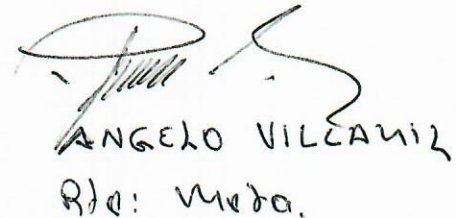 ANGELO VILLAMIL
Rte: Meta.